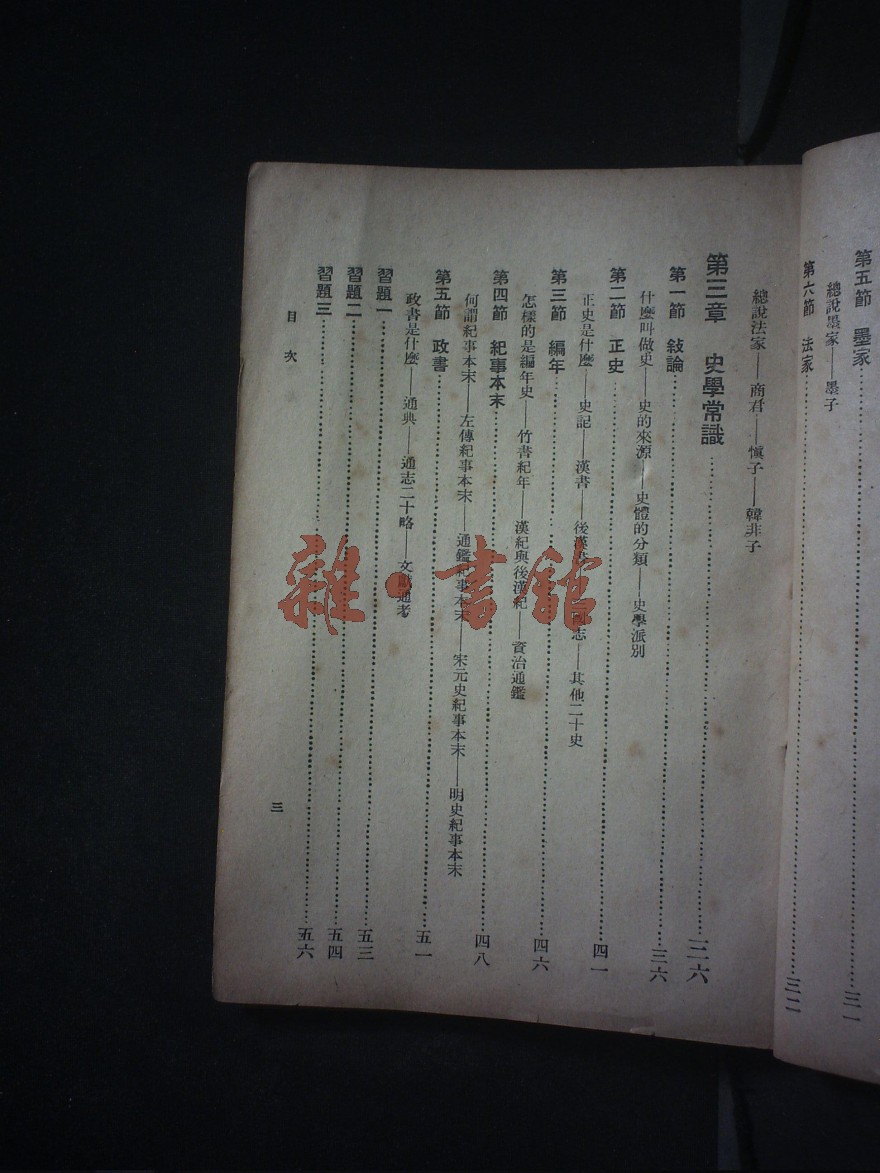 第五節 墨家……三一
總說墨家——墨子
第六節 法家……三二
總說法家——商君——慎子——韓非子
第三章 史學常識……三六
第一節 敍論……三六
什麼叫做史——史的來源——史體的分類——史學派別
第二節 正史……四一
正史是什麼——史記——漢書——後漢書——三國志——其他二十史
第三節 編年……四六
怎樣的是編年史——竹書紀年——漢紀與後漢紀——資治通鑑
第四節 紀事本末……四八
何謂紀事本末——左傳紀事本末——通鑑紀事本末——宋元史紀事本末——明史紀事本末
第五節 政書……五一
政書是什麼——通典——通志二十略——文獻通考
習題一……五三
習題二……五四
習題三……五六
目次
三
雜·書館